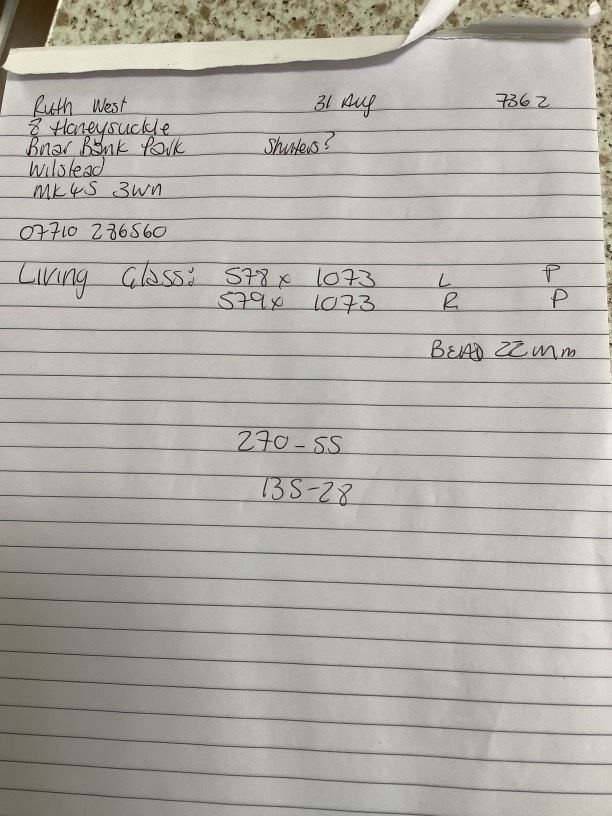 Ruth West 31 Aug 7362
8 Honeysuckle
Briar Bank Park Shutters?
Wilstead
MK45 3WN
07710 286560
Living Glass: 578 x 1073 L P
579 x 1073 R P
BEAD 22mm
270-55
135-28